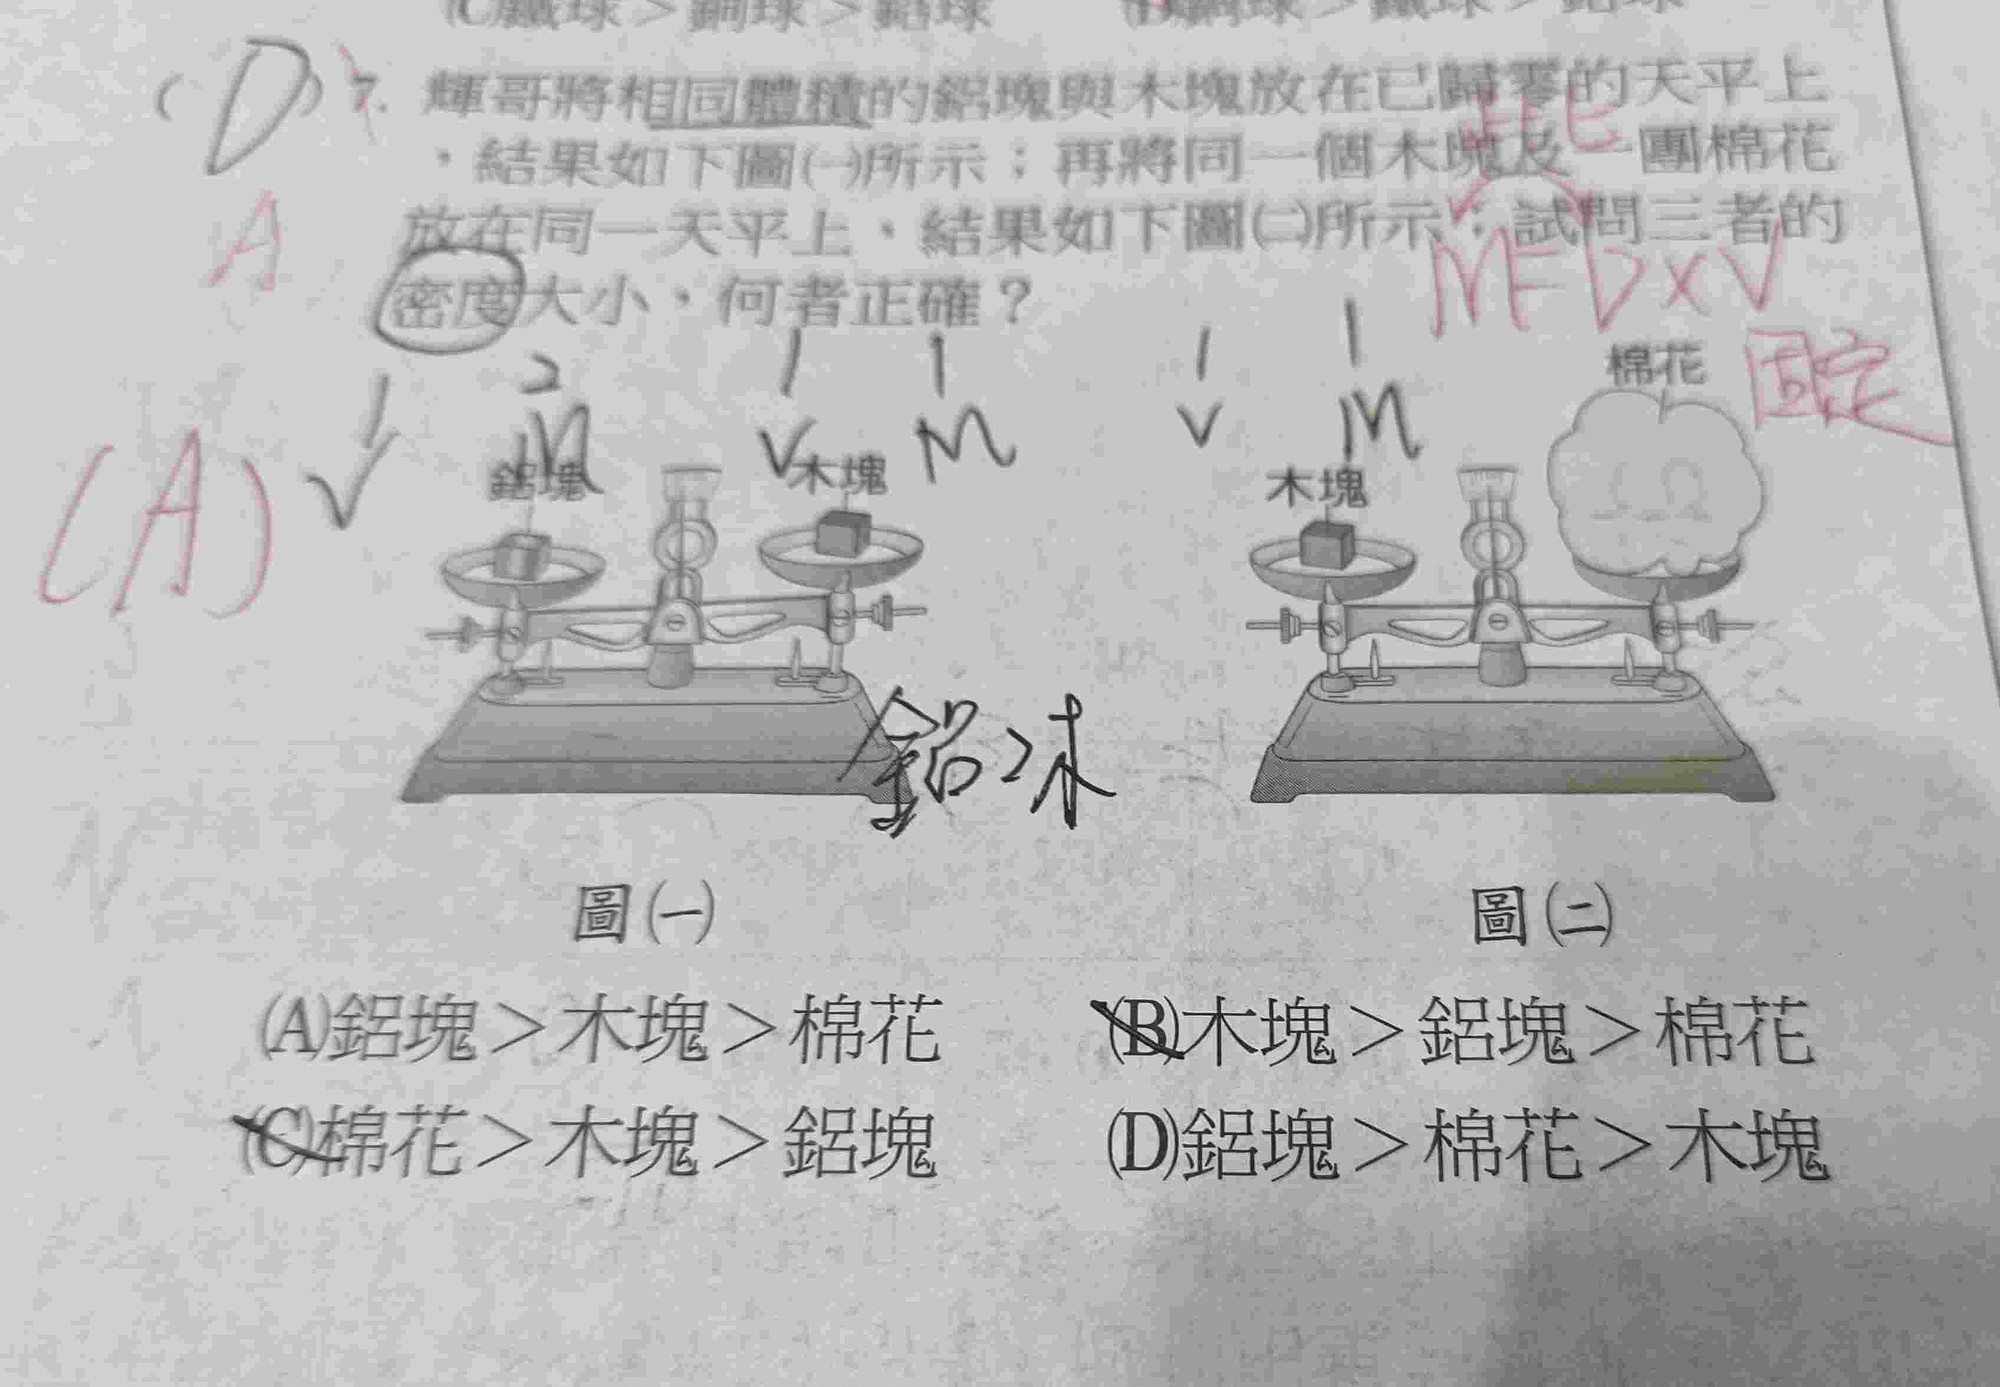 (C)鐵球＞銅球＞鉛球 (D)銅球＞鐵球＞鉛球
(D) 7. 輝哥將相同體積的鋁塊與木塊放在已歸零的天平上
，結果如下圖㈠所示；再將同一個木塊及一團棉花
放在同一天平上，結果如下圖㈡所示；試問三者的
A
密度大小，何者正確？
M=D×V
固定
棉花
1 2 1 1 1 1
V M V M V M
(A)
鋁塊 木塊 木塊
鋁>木
圖㈠ 圖㈡
(A)鋁塊＞木塊＞棉花 (B)木塊＞鋁塊＞棉花
(C)棉花＞木塊＞鋁塊 (D)鋁塊＞棉花＞木塊